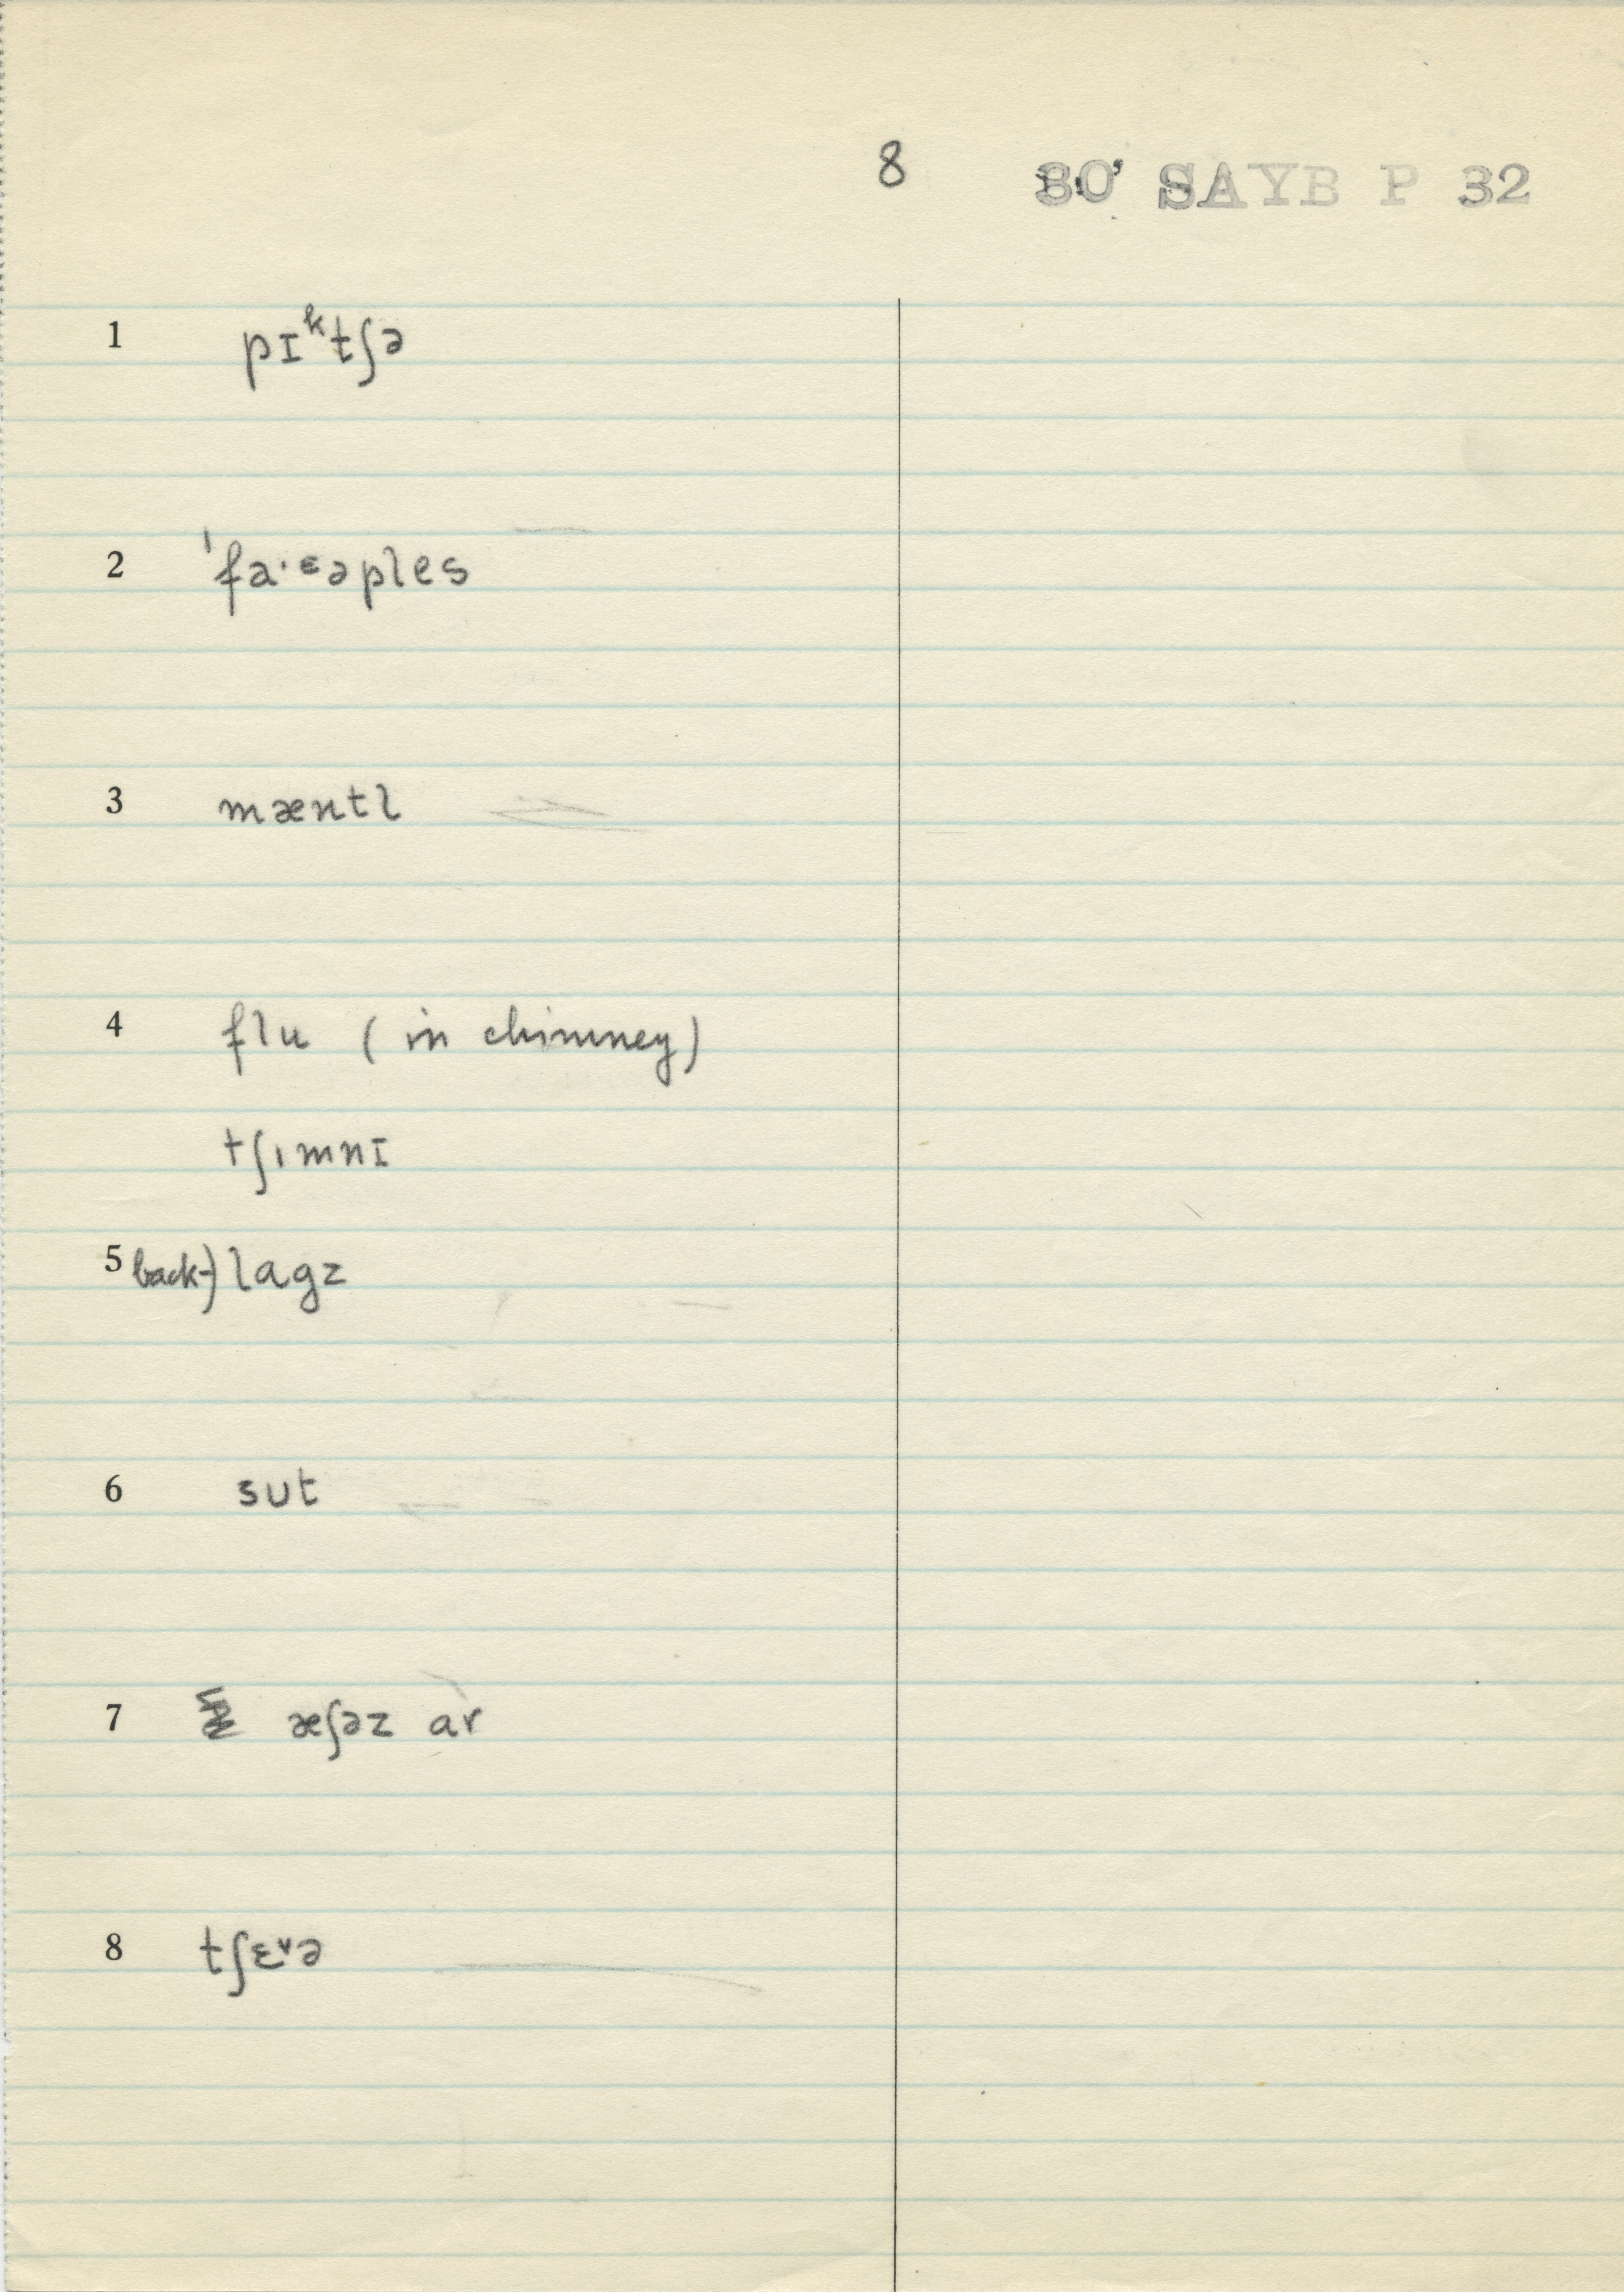 8 80' SAYB P 32
1 pɪᵏtʃə
2 ˈfa·ᵋəples
3 mæntl
4 flu (in chimney)
tʃımnɪ
5 back-) lagz
6 sut
7 æʃəz ar
8 tʃɛᵛə